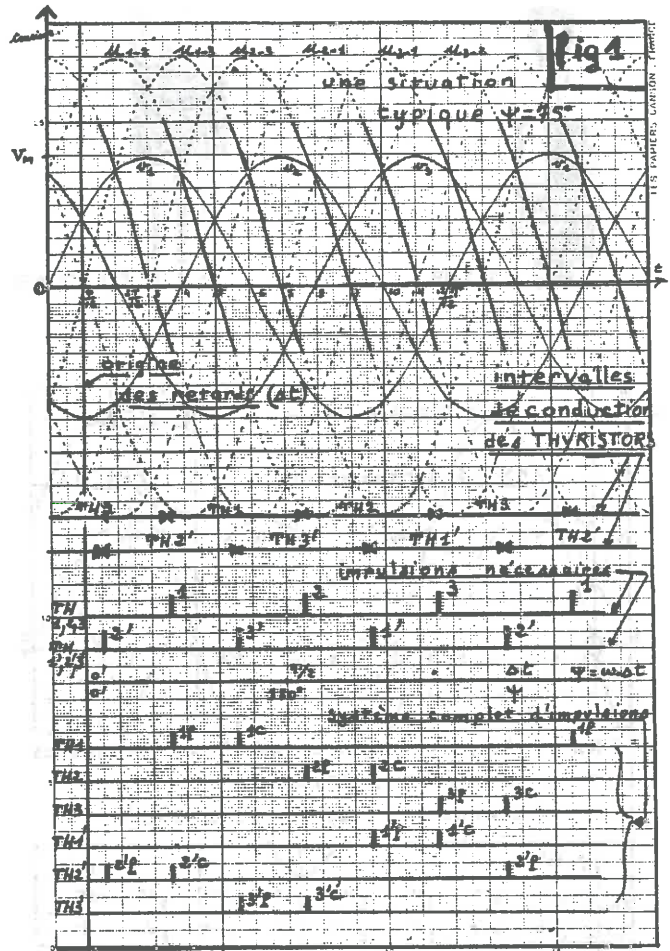 Fig 1
u1-2 u1-3 u2-3 u2-1 u3-1 u3-2
une situation
typique Ψ=75°
LES PAPIERS CANSON FRANCE
VM
v1 v2 v3 v1
0
origine
des retards (Δt)
intervalles
de conduction
des THYRISTORS
TH3 TH1 TH2 TH3
TH2' TH3' TH1' TH2'
impulsions nécessaires
TH 1 2 3 1
1,2,3
TH 2' 3' 1' 2'
1',2',3'
0' T/2 Δt Ψ=ωΔt
0' 180° Ψ
Système complet d'impulsions
TH1 1p 1c 1p
TH2 2p 2c
TH3 3p 3c
TH1' 1'p 1'c
TH2' 2'p 2'c 2'p
TH3' 3'p 3'c